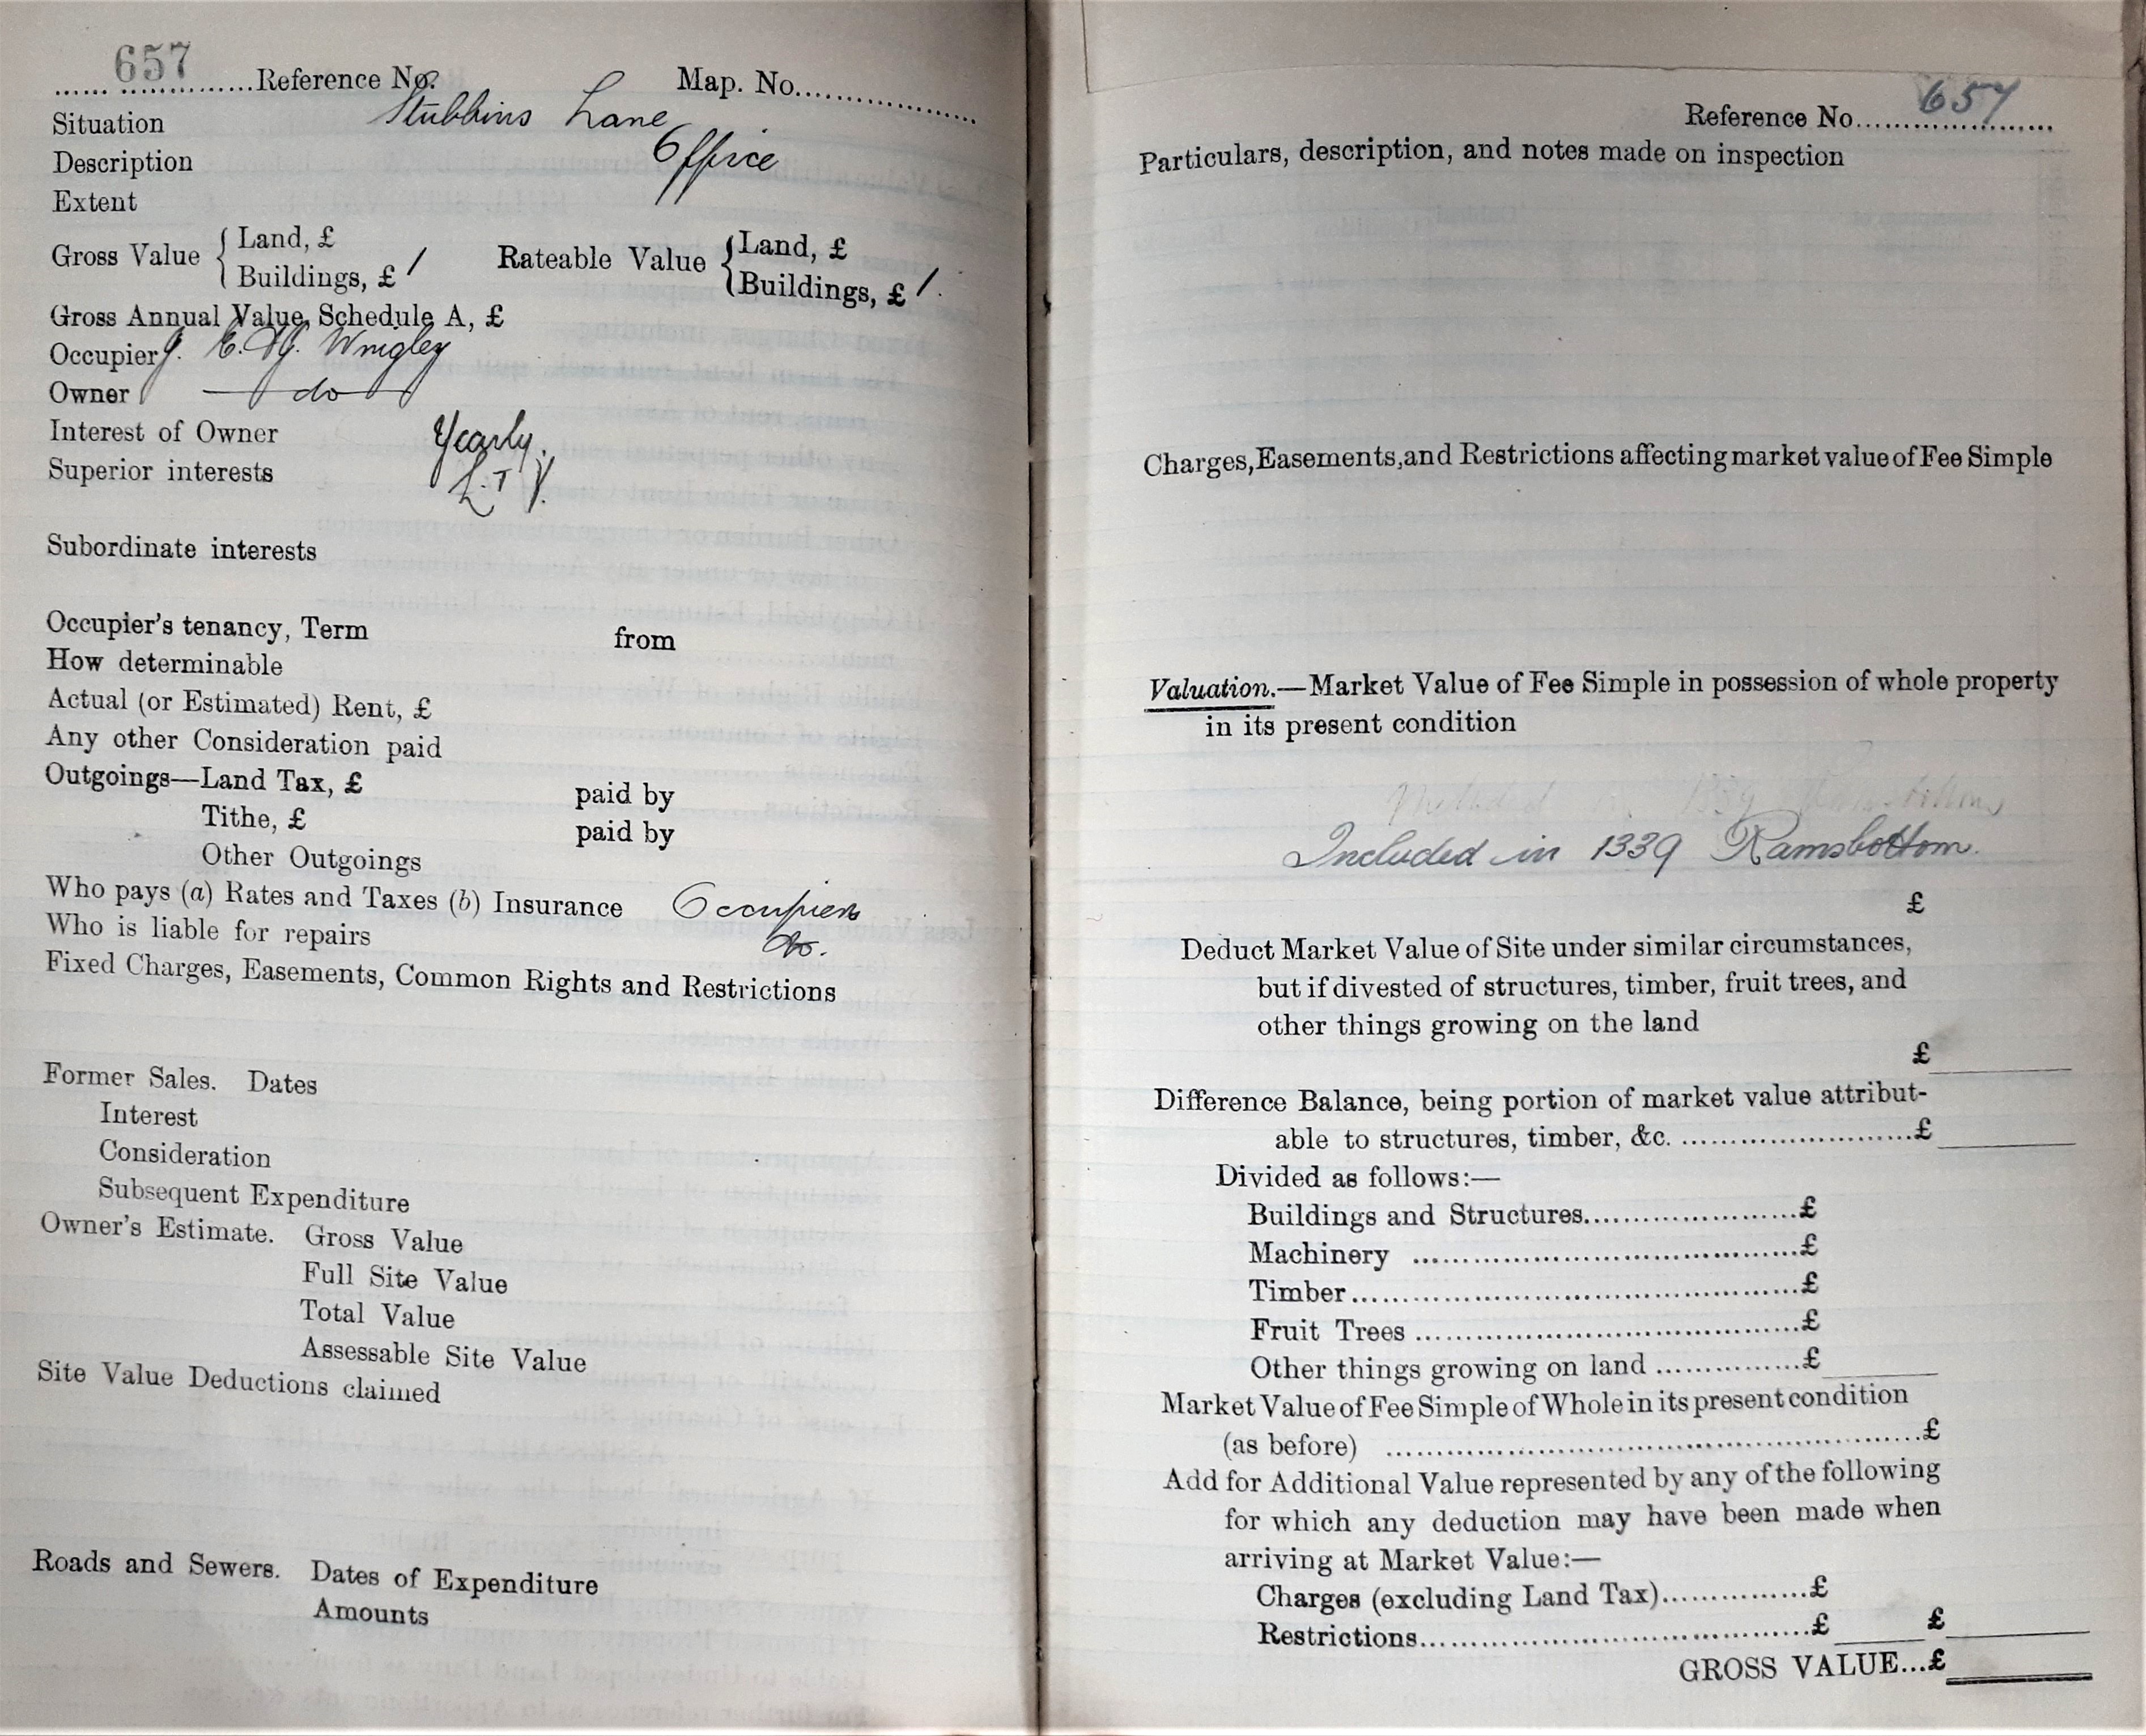 657
......  ..............Reference No.    Map. No....................
Situation Stubbins Lane
Description Office
Extent
Gross Value { Land, £    Rateable Value { Land, £
Buildings, £ /    Buildings, £ /.
Gross Annual Value, Schedule A, £
Occupier J. E. & G. Wrigley
Owner — do —
Interest of Owner Yearly.
Superior interests L.T.V.
Subordinate interests
Occupier's tenancy, Term    from
How determinable
Actual (or Estimated) Rent, £
Any other Consideration paid
Outgoings—Land Tax, £    paid by
Tithe, £    paid by
Other Outgoings
Who pays (a) Rates and Taxes (b) Insurance Occupiers
Who is liable for repairs do.
Fixed Charges, Easements, Common Rights and Restrictions
Former Sales. Dates
Interest
Consideration
Subsequent Expenditure
Owner's Estimate. Gross Value
Full Site Value
Total Value
Assessable Site Value
Site Value Deductions claimed
Roads and Sewers. Dates of Expenditure
Amounts
Reference No. 657
Particulars, description, and notes made on inspection
Charges, Easements, and Restrictions affecting market value of Fee Simple
Valuation.—Market Value of Fee Simple in possession of whole property
in its present condition
Included in 1339 Ramsbottom
Included in 1339 Ramsbottom.
£
Deduct Market Value of Site under similar circumstances,
but if divested of structures, timber, fruit trees, and
other things growing on the land
£
Difference Balance, being portion of market value attribut-
able to structures, timber, &c. ..........................£
Divided as follows:—
Buildings and Structures........................£
Machinery ..........................................£
Timber................................................£
Fruit Trees ..........................................£
Other things growing on land ...............£
Market Value of Fee Simple of Whole in its present condition
(as before) ..........................................................£
Add for Additional Value represented by any of the following
for which any deduction may have been made when
arriving at Market Value:—
Charges (excluding Land Tax)................£
Restrictions..........................................£    £
GROSS VALUE...£